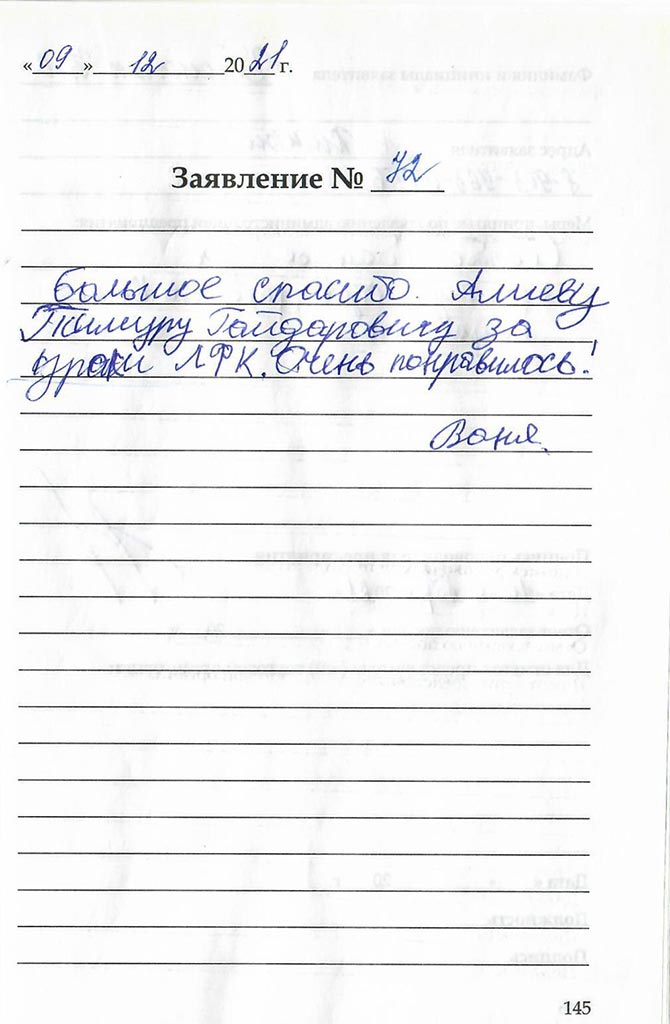 «09» 12 2021 г.
Заявление № 72
Большое спасибо Алиеву
Тимуру Гайдаровичу за
уроки ЛФК. Очень понравилось!
Ваня.
145